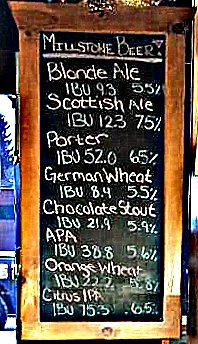 MILLSTONE BEER
Blonde Ale
IBU 9.3 5.5%
Scottish Ale
IBU 12.3 7.5%
Porter
IBU 52.0 6.5%
German Wheat
IBU 8.4 5.5%
Chocolate Stout
IBU 21.9 5.9%
APA
IBU 38.8 5.6%
Orange Wheat
IBU 22.2 5.8%
Citrus IPA
IBU 75.3 6.5%